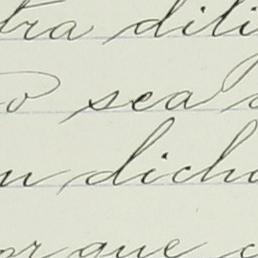 tra dili
o sea
n dicho
or que